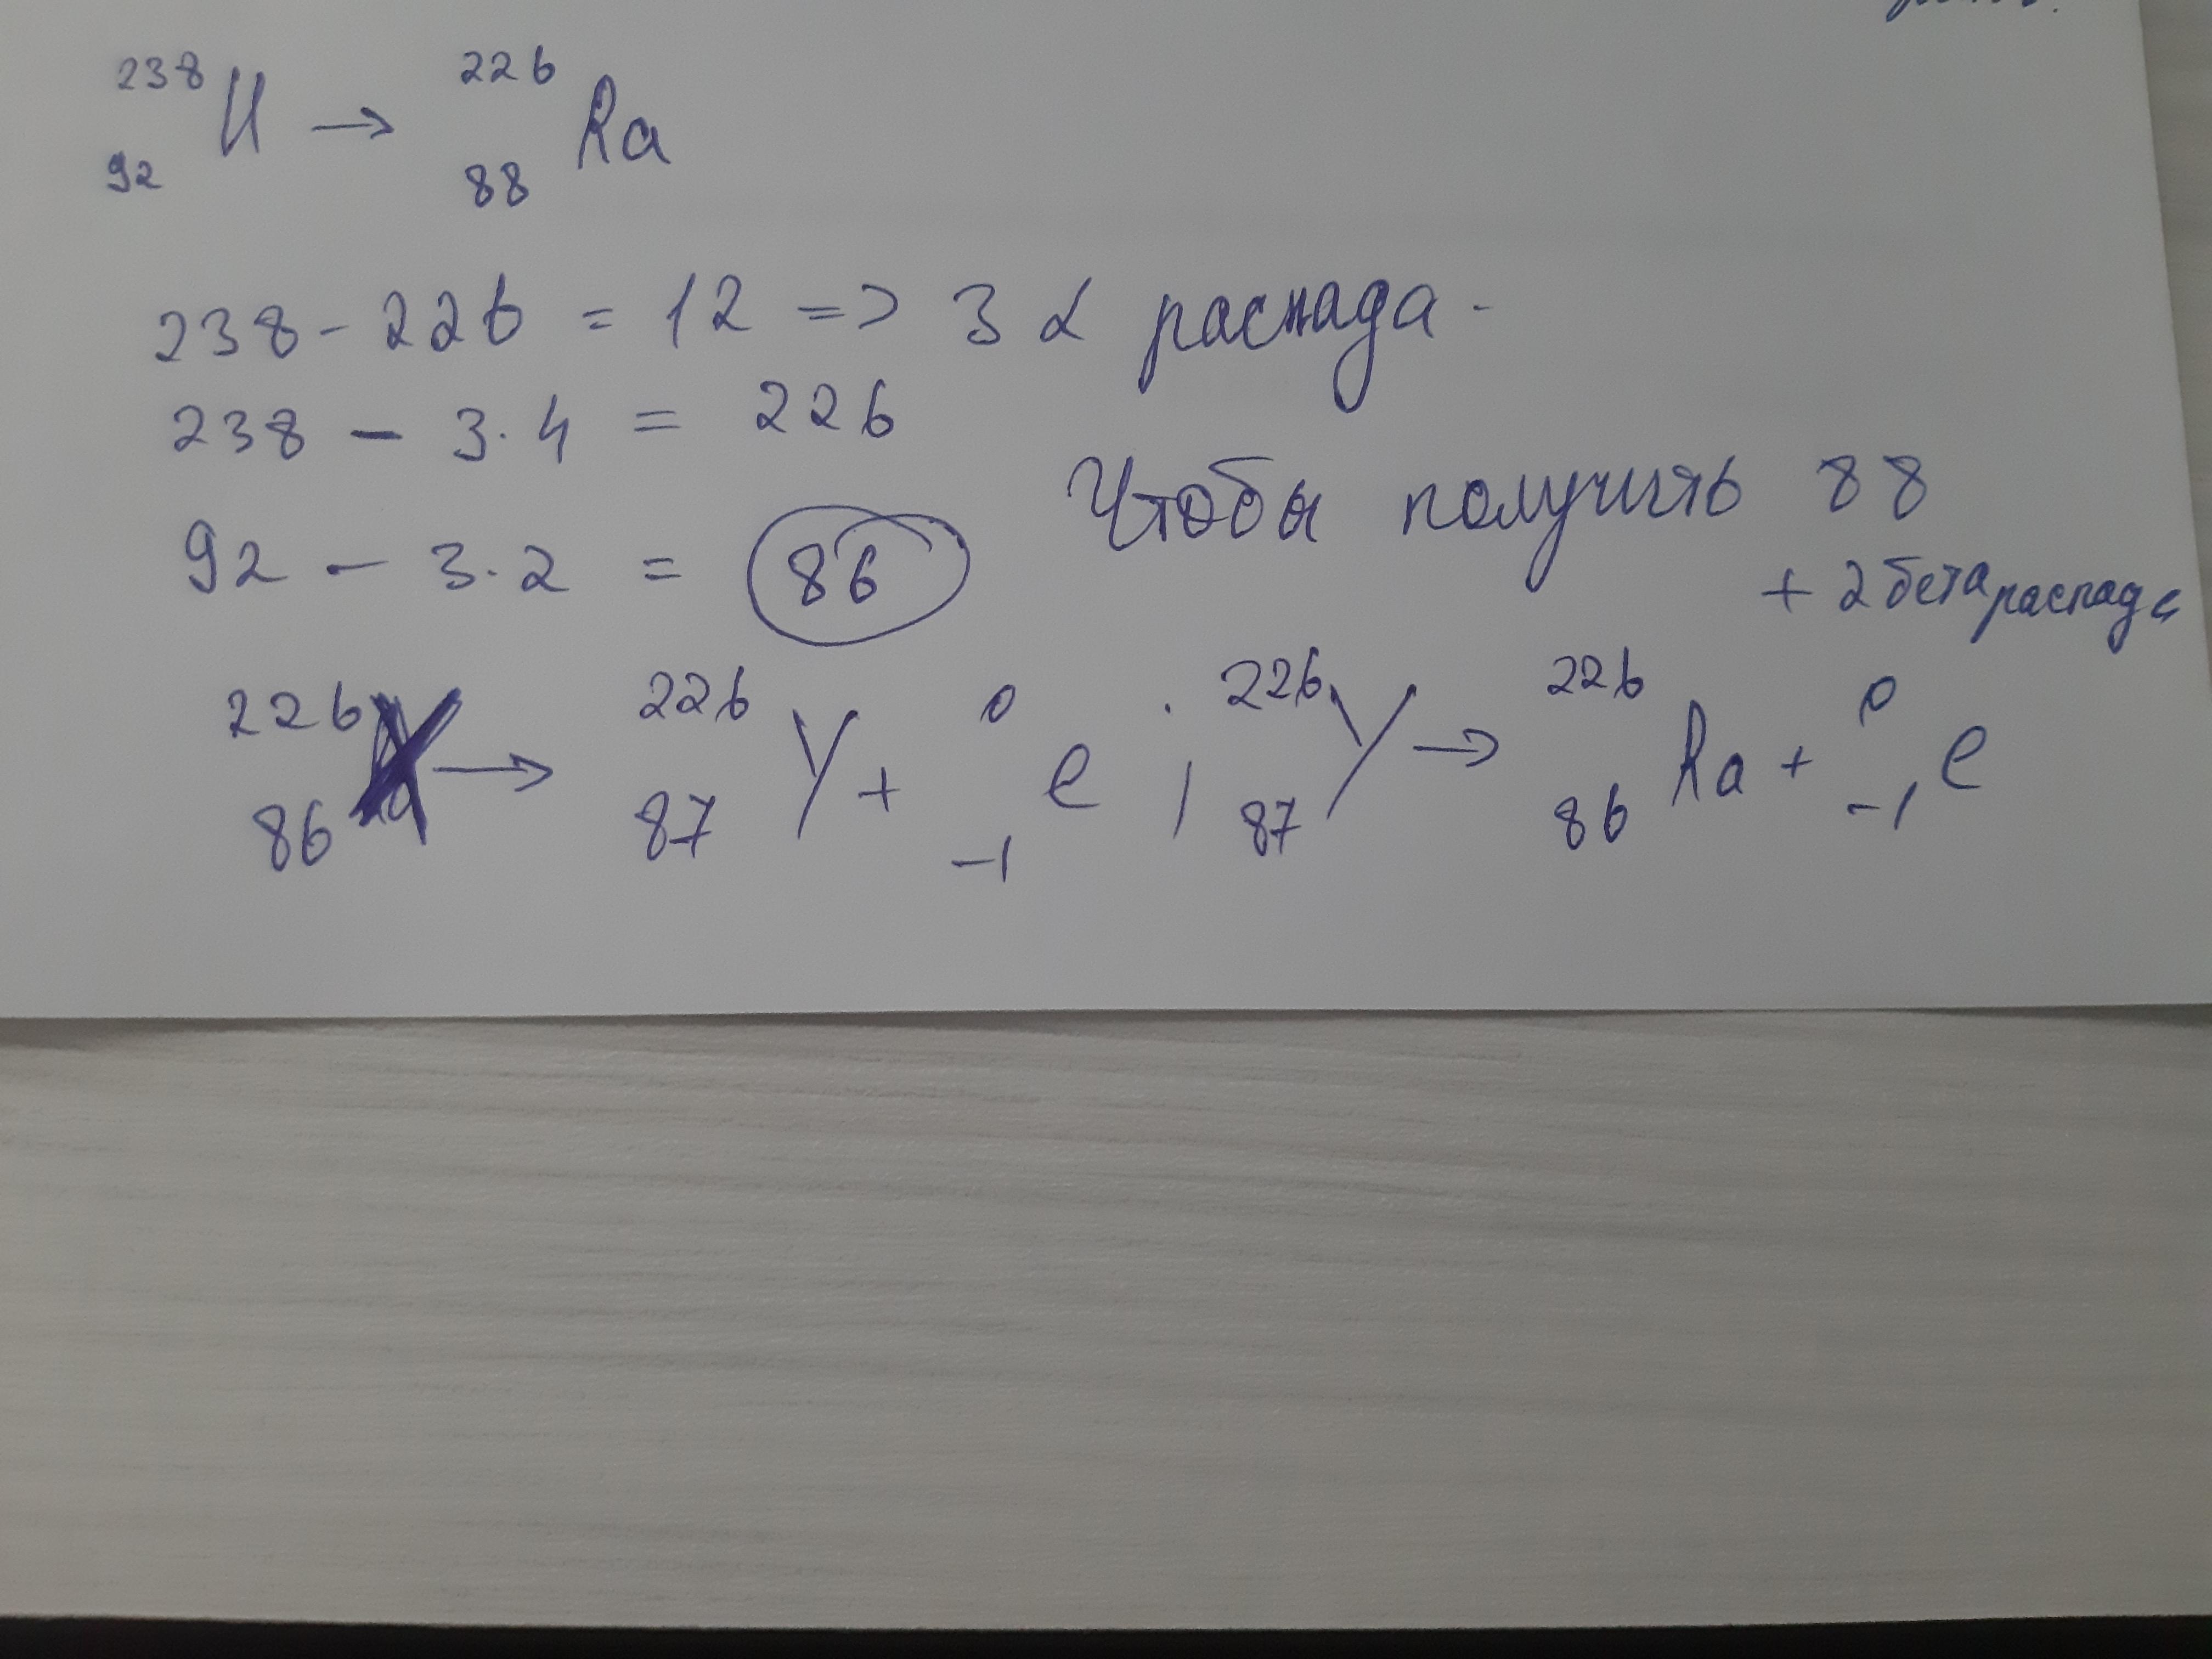 ²³⁸₉₂U → ²²⁶₈₈Ra
238 - 226 = 12 => 3 α распада -
238 - 3·4 = 226
92 - 3·2 = 86
Чтобы получить 88
+ 2 бета распада
²²⁶₈₆X → ²²⁶₈₇Y + ⁰₋₁e ; ²²⁶₈₇Y → ²²⁶₈₆Ra + ⁰₋₁e